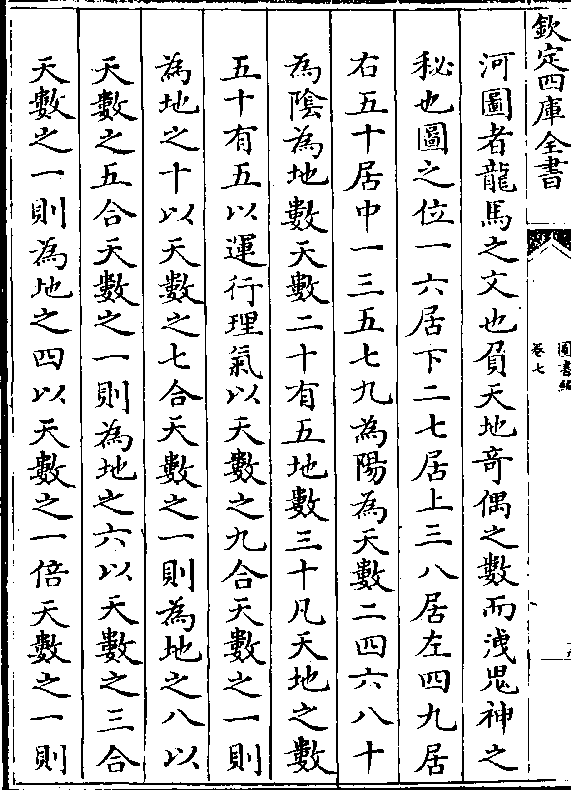 欽定四庫全書
圖書編
卷七
河圖者龍馬之文也負天地竒偶之數而洩鬼神之
秘也圖之位一六居下二七居上三八居左四九居
右五十居中一三五七九為陽為天數二四六八十
為陰為地數天數二十有五地數三十凡天地之數
五十有五以運行理氣以天數之九合天數之一則
為地之十以天數之七合天數之一則為地之八以
天數之五合天數之一則為地之六以天數之三合
天數之一則為地之四以天數之一倍天數之一則